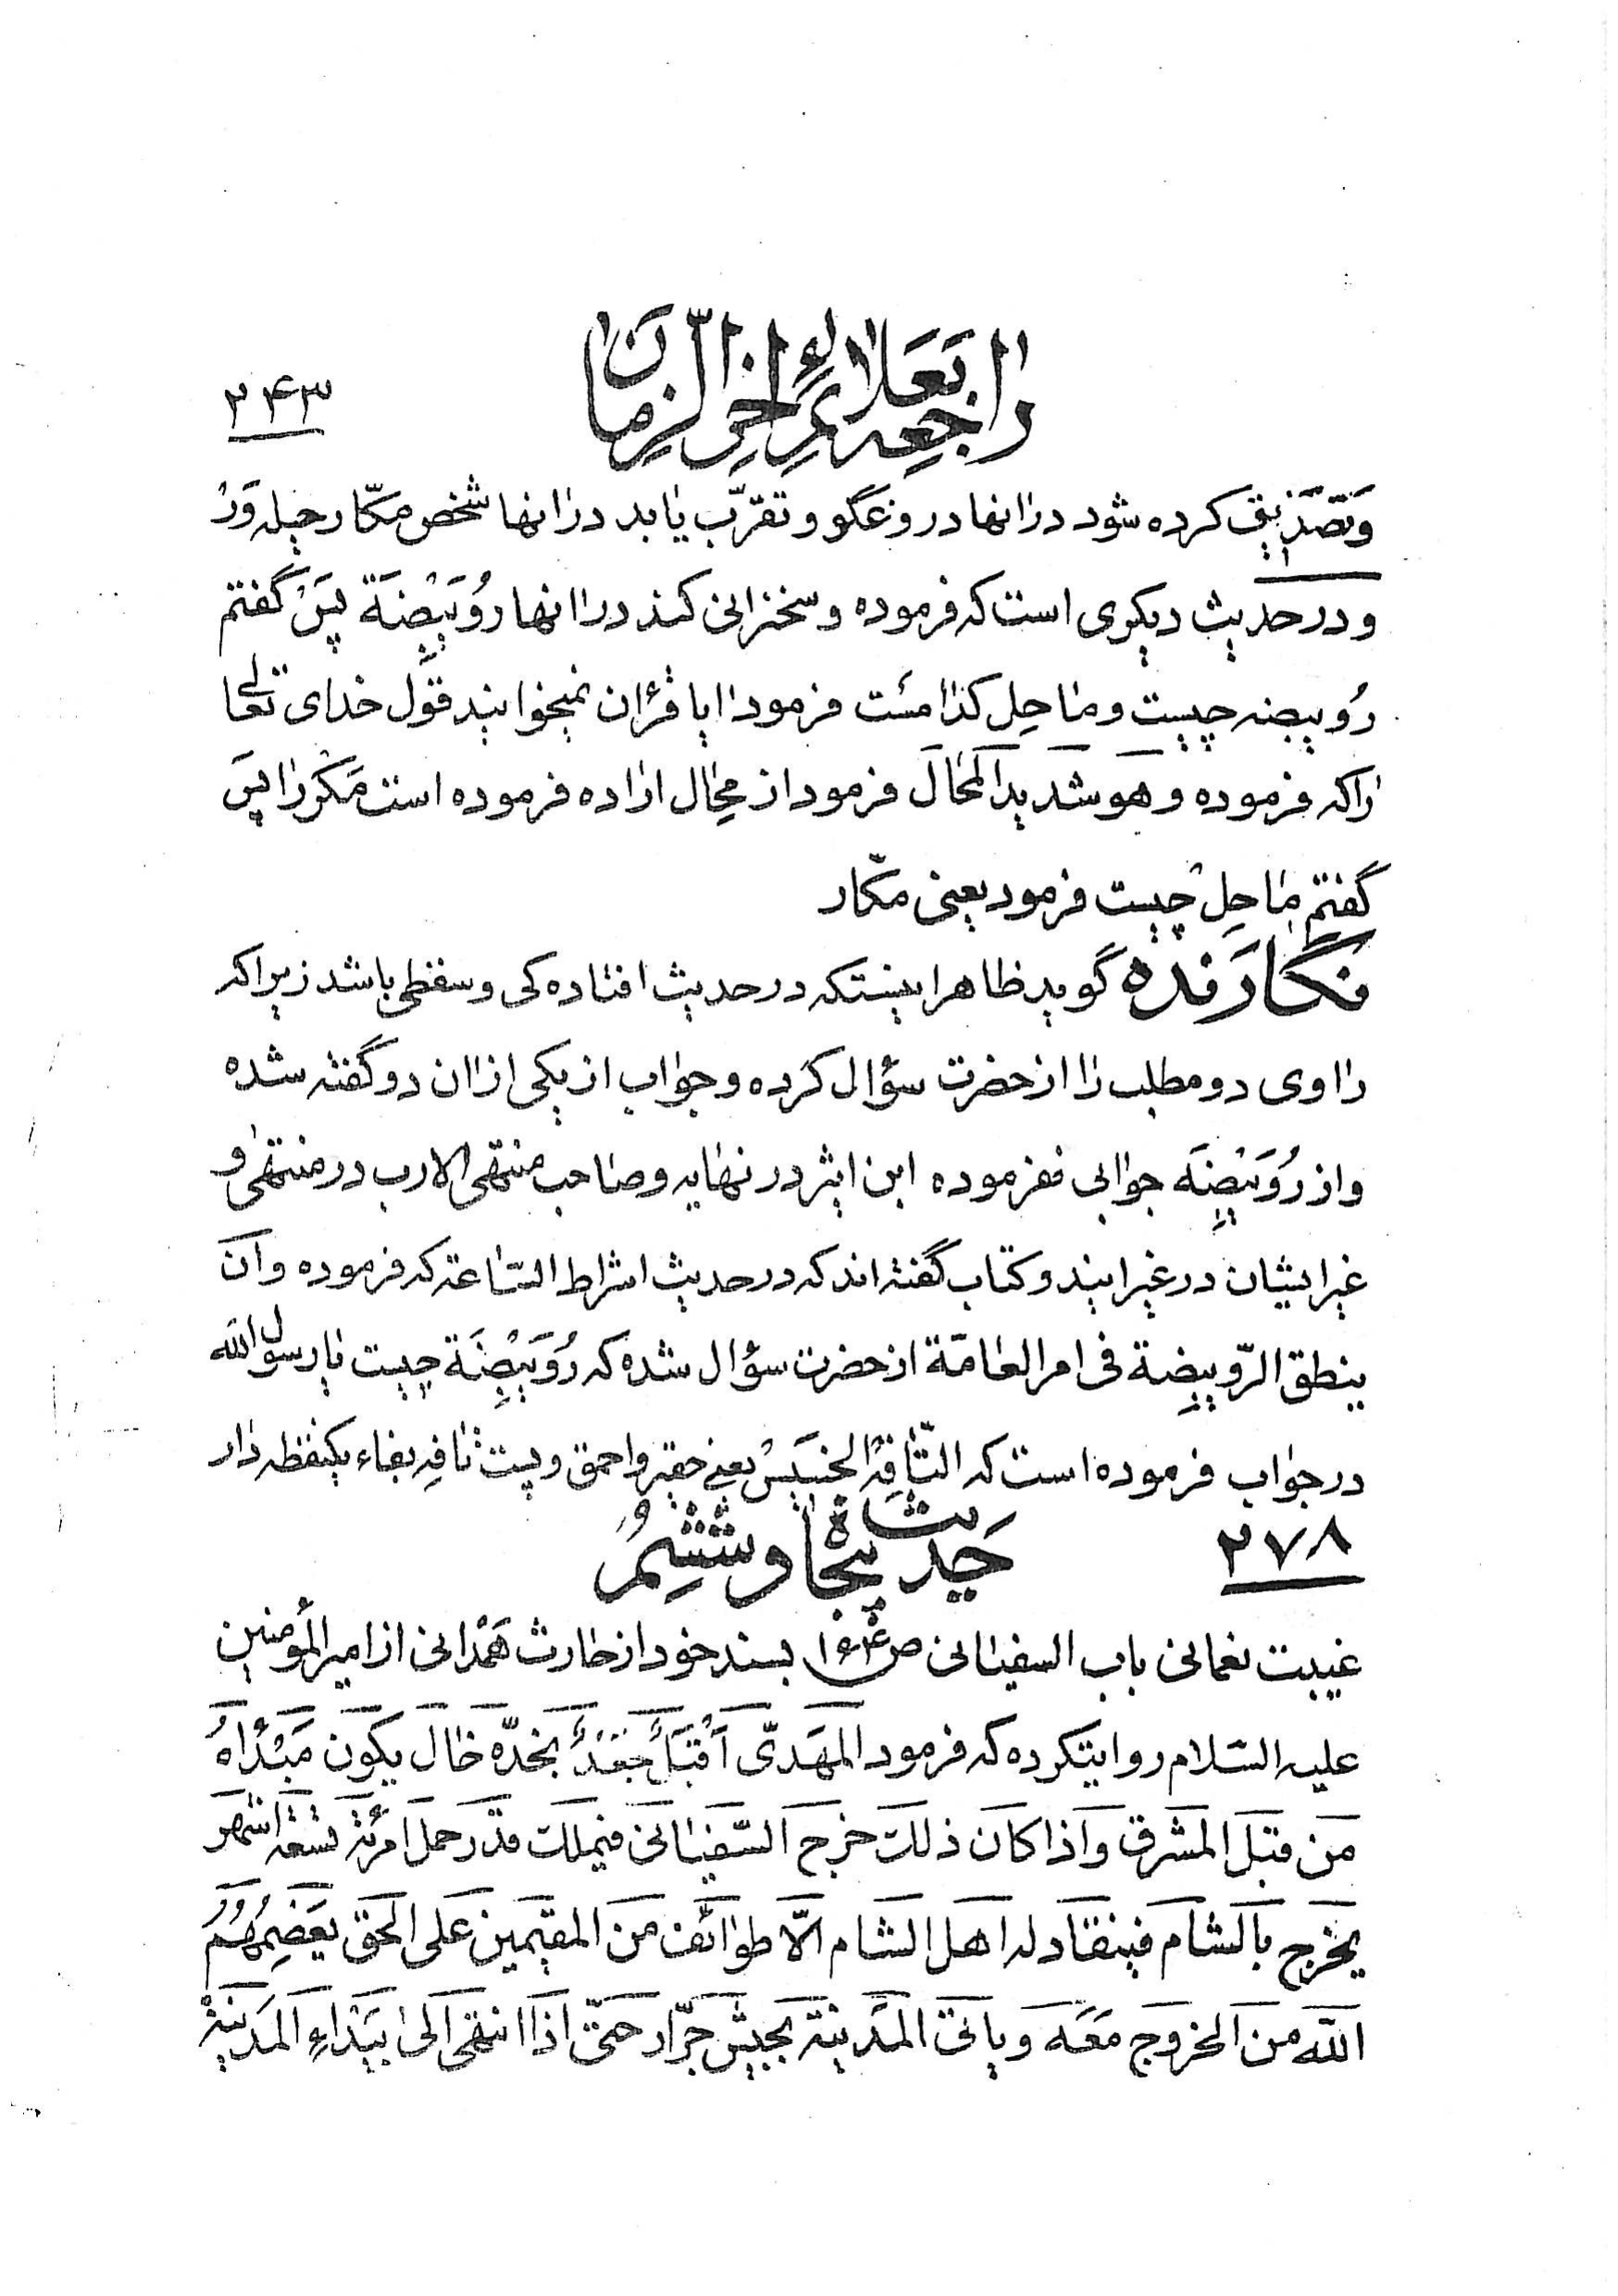 راجعه بعلائم اخر الزمان
۲۴۳
وتصدیق کرده شود در انها دروغگو و تقرّب یابد در انها شخص مکّار حیله وَرْ
و در حدیث دیگری است که فرموده و سخنرانی کند در انها رُوَیْبِضَة پَسْ گفتم
رُوَیبضه چیست و ماحِل کدامَست فرمود ایا قرُان نمیخوانید قَول خدای تعالی
را که فرموده و هو شدید المحال فرمود از مِحال اراده فرموده است مَکْر را پَس
گفتم ماحِلْ چیست فرمود یعنی مکّار
نگارَنده گوید ظاهرا اینستکه در حدیث افتاده کی و سقطی باشد زیرا که
راوی دو مطلب را از حضرت سؤال کرده و جواب از یکی از ان دو گفته شده
و از رُوَیْبِضَه جوابی نفرموده ابن اثیر در نهایه و صاحب منتهی الارب در منتهی و
غیر ایشان در غیر ایندو کتاب گفته اند که در حدیث اشراط السّاعة که فرموده وان
ینطق الرّویبِضة فی امر العامّة از حضرت سؤال شده که رُوَیْبِضَة چیست یا رسول الله
در جواب فرموده است که التّافِهُ الخسَیسْ یعنی حقیر و احمق و پست تافِه بفاء یکنقطه دار
۲۷۸
حَدیث پنجاه و ششمُ
غیبت نعمانی باب السفیانی ص ۱۶۳ بسند خود از حارث هَمْدانی از امیر المؤمنین
علیه السّلام روایتکرده که فرمود المهَدیّ اَقْبَلُ جَعْدٌ بخدّه خال یکون مَبْدَاهُ
من قبل المشرق و اذا کان ذلک خرج السّفیانی فیملک قدر حمل امرئة تسعة اشهر
یخرج بالشام فینقاد له اهل الشام الّا طوائف من المقیمین علی الحق یَعْصِمُهُمُ
الله من الخروج مَعَه ویاتی المَدینة بجیش جرّار حتّی اذا انتهی الی بَیْداءِ المَدینَةِ